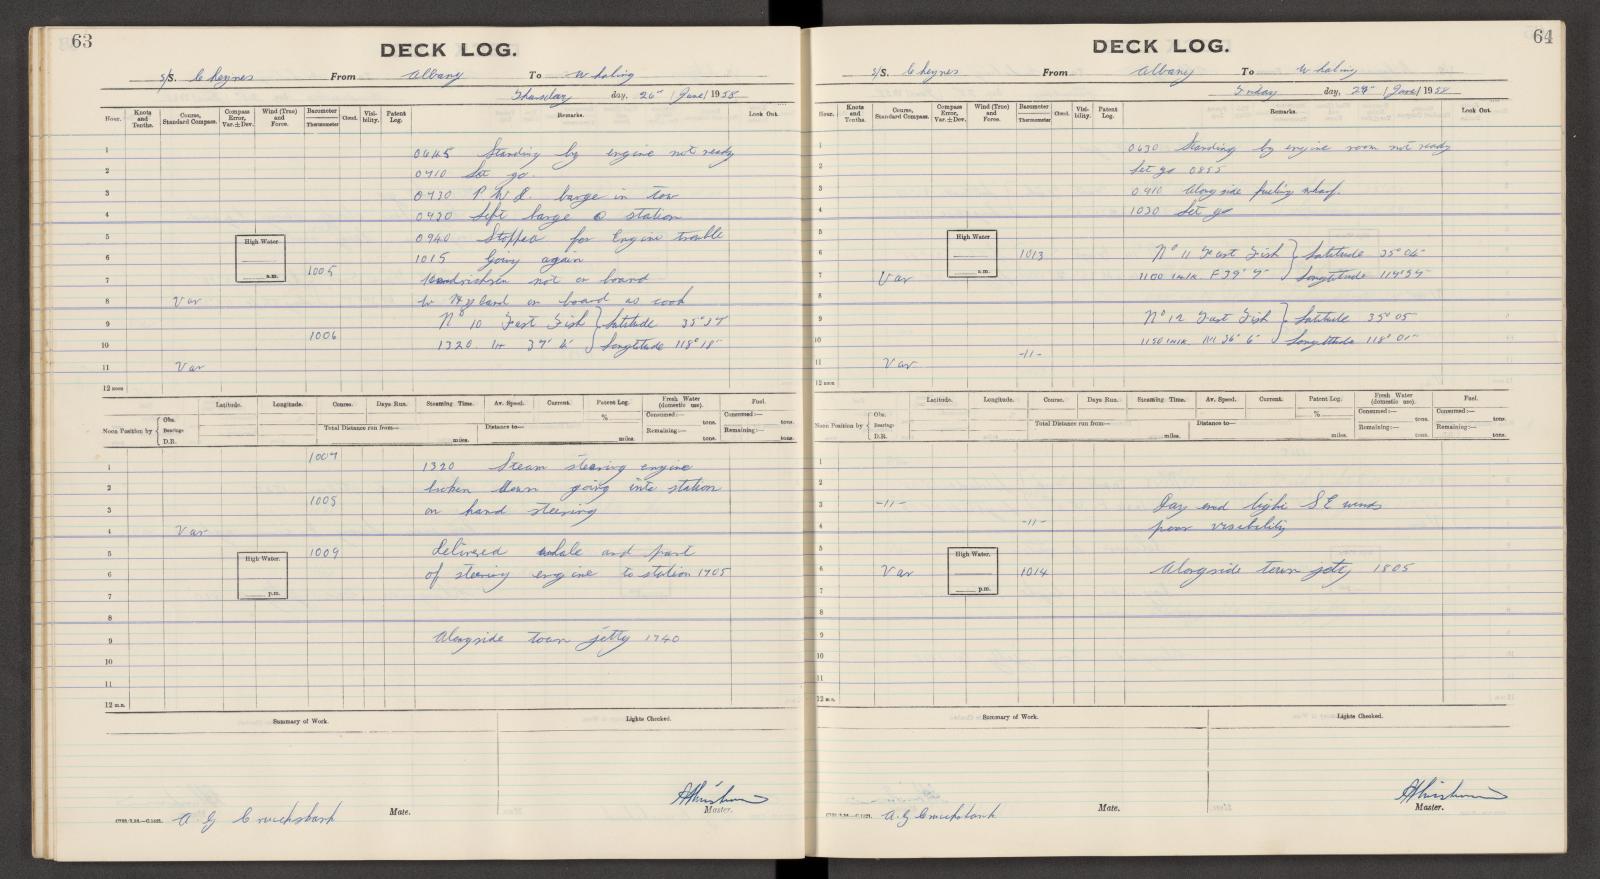 63
DECK LOG.
S/S. Cheynes From Albany To Whaling
Thursday day, 26th / June / 1958
Hour. Knots and Tenths. Course, Standard Compass. Compass Error, Var. ± Dev. Wind (True) and Force. Barometer Thermometer Cloud. Visibility. Patent Log. Remarks. Look Out.
1 0645 Standing by engine not ready
2 0710 Let go.
3 0730 P.W.D. barge in tow
4 Left barge @ station
5 0940 Stopped for Engine trouble
High Water a.m.
6 1015 Going again
7 1005 not on board
8 Var Hyland on board as cook
9 No 10 Fast Fish } Latitude
10 1006 1320 Longtitude 118° 18'
11 Var
12 noon
Latitude. Longitude. Course. Days Run. Steaming Time. Av. Speed. Current. Patent Log. % Fresh Water (domestic use). Fuel.
Noon Position by { Obs. Bearings D.R. Total Distance run from— miles. Distance to— miles. Consumed:— tons. Remaining:— tons. Consumed:— tons. Remaining:— tons.
1 1007 1320 Steam steering engine
2 broken down going into station
3 1005 on hand steering
4 Var
5 1009 delivered whale and part
High Water. p.m.
6 of steering engine to station 1705
7
8
9 Alongside town jetty 1740
10
11
12 m.n.
Summary of Work. Lights Checked.
A. G Cruickshank Mate. Master.
64
DECK LOG.
S/S. Cheynes From Albany To Whaling
Friday day, 27th / June / 1958
Hour. Knots and Tenths. Course, Standard Compass. Compass Error, Var. ± Dev. Wind (True) and Force. Barometer Thermometer Cloud. Visibility. Patent Log. Remarks. Look Out.
1 0630 Standing by engine room not ready
2 Let go 0855
3 0910 Alongside fueling wharf.
4 1030 Let go
5
High Water a.m.
6 1013 No 11 Fast Fish } Latitude
7 Var 1100 Longtitude
8
9 No 12 Fast Fish } Latitude 35° 05'
10 1150 Longtitude 118° 01'
11 Var -11-
12 noon
Latitude. Longitude. Course. Days Run. Steaming Time. Av. Speed. Current. Patent Log. % Fresh Water (domestic use). Fuel.
Noon Position by { Obs. Bearings D.R. Total Distance run from— miles. Distance to— miles. Consumed:— tons. Remaining:— tons. Consumed:— tons. Remaining:— tons.
1
2
3 -11- Day end light S E winds
4 -11- poor visibility
5
High Water. p.m.
6 Var 1014 Alongside town jetty 1805
7
8
9
10
11
12 m.n.
Summary of Work. Lights Checked.
A. G Cruickshank Mate. Master.